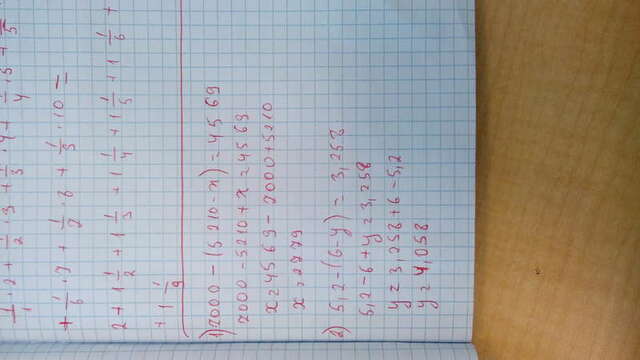 1/1 · 2 + 1/2 · 3 + 1/3 · 4 + 1/4 · 5 + 1/5
+ 1/6 · 7 + 1/7 · 8 + 1/9 · 10 =
2 + 1 1/2 + 1 1/3 + 1 1/4 + 1 1/5 + 1 1/6 +
+ 1 1/9
1) 7000 - (5210 - x) = 4569
7000 - 5210 + x = 4569
x = 4569 - 7000 + 5210
x = 2779
2) 5,2 - (6 - y) = 3,258
5,2 - 6 + y = 3,258
y = 3,258 + 6 - 5,2
y = 4,058